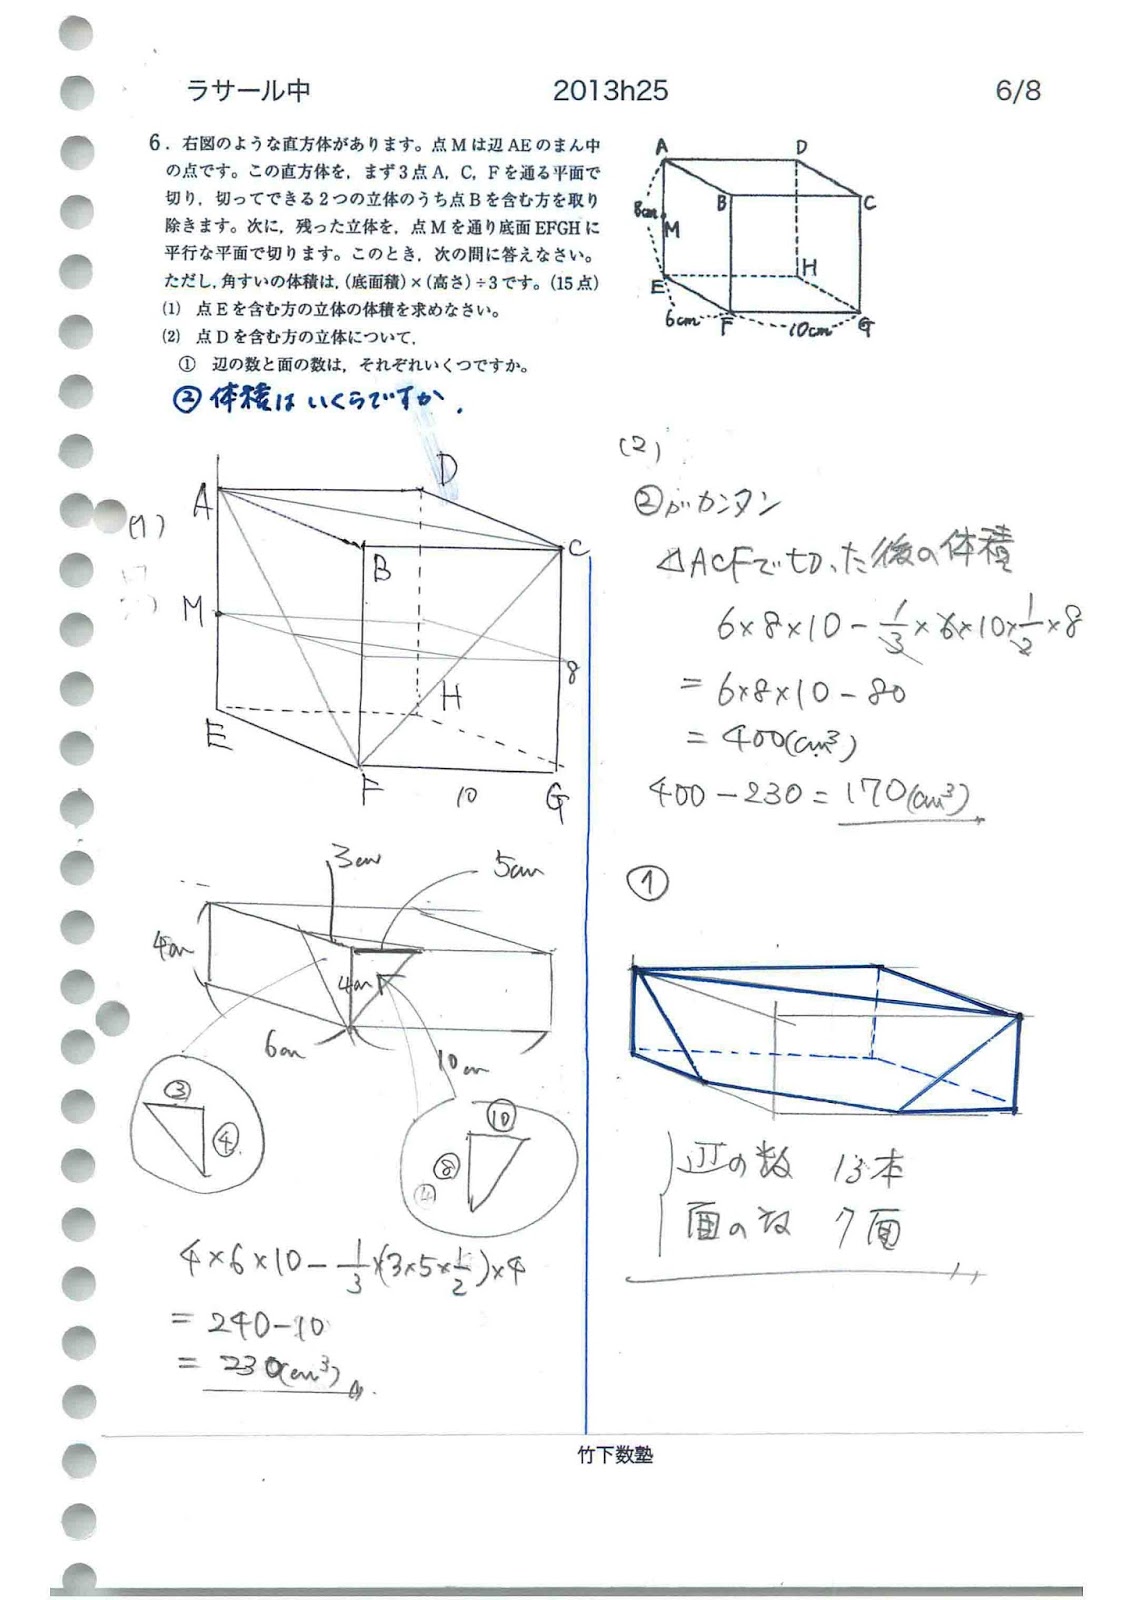 ラサール中 2013h25 6/8
6．右図のような直方体があります。点Mは辺AEのまん中
の点です。この直方体を，まず3点A，C，Fを通る平面で
切り，切ってできる2つの立体のうち点Bを含む方を取り
除きます。次に，残った立体を，点Mを通り底面EFGHに
平行な平面で切ります。このとき，次の問に答えなさい。
ただし，角すいの体積は，(底面積)×(高さ)÷3です。(15点)
(1) 点Eを含む方の立体の体積を求めなさい。
(2) 点Dを含む方の立体について，
① 辺の数と面の数は，それぞれいくつですか。
② 体積はいくらですか．
A
D
B
C
8cm
M
H
E
6cm
F
10cm
G
(1)
A
D
B
C
M
8
H
E
F
10
G
3cm
5cm
4cm
4cm
6cm
10cm
③
④
⑩
⑧
④
4×6×10－1/3×(3×5×1/2)×4
＝ 240－10
＝ 230(cm³)
(2)
②がカンタン
△ACFで切った後の体積
6×8×10－1/3×6×10×1/2×8
＝ 6×8×10－80
＝ 400(cm³)
400－230＝170(cm³)
①
辺の数 13本
面の数 7面
竹下数塾